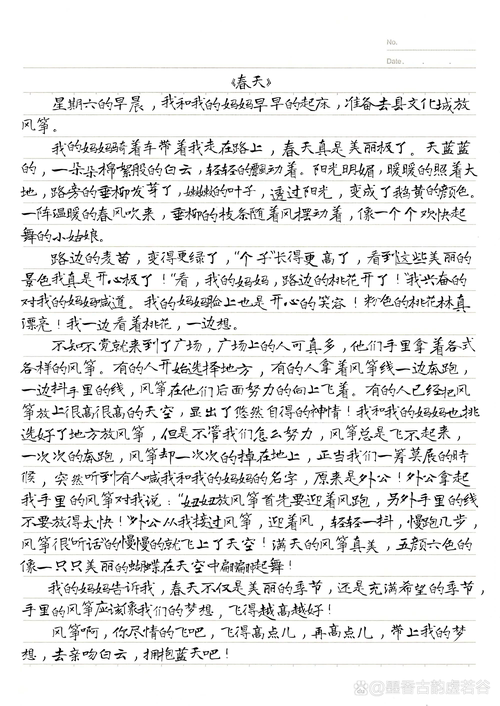 No.
Date.
《春天》
星期六的早晨，我和我的妈妈早早的起床，准备去县文化城放
风筝。
我的妈妈骑着车带着我走在路上，春天真是美丽极了。天蓝蓝
的，一朵朵棉絮般的白云，轻轻的飘动着。阳光明媚，暖暖的照着大
地，路旁的垂柳发芽了，嫩嫩的叶子，透过阳光，变成了鹅黄的颜色。
一阵温暖的春风吹来，垂柳的枝条随着风摆动着，像一个个欢快起
舞的小姑娘。
路边的麦苗，变得更绿了，“个子”长得更高了，看到这些美丽的
景色我真是开心极了！“看，我的妈妈，路边的桃花开了！”我兴奋的
对我的妈妈喊道。我的妈妈脸上也是开心的笑容！粉色的桃花林真
漂亮！我一边看着桃花，一边想。
不知不觉就来到了广场，广场上的人可真多，他们手里拿着各式
各样的风筝。有的人开始选择地方，有的人拿着风筝线一边奔跑，
一边抖手里的线，风筝在他们后面努力的向上飞着。有的人已经把风
筝放上很高很高的天空，显出了悠然自得的神情！我和我的妈妈也挑
选好了地方放风筝，但是不管我们怎么努力，风筝总是飞不起来，
一次次的奔跑，风筝却一次次的掉在地上，正当我们一筹莫展的时
候，突然听到有人喊我和我的妈妈的名字，原来是外公！外公拿起
我手里的风筝对我说：“妞妞放风筝首先要迎着风跑，另外手里的线
不要放得太快！”外公从我接过风筝，迎着风，轻轻一抖，慢跑几步，
风筝很“听话”的慢慢的就飞上了天空！满天的风筝真美，五颜六色的
像一只只美丽的蝴蝶在天空中翩翩起舞！
我的妈妈告诉我，春天不仅是美丽的季节，还是充满希望的季节，
手里的风筝应该像我们的梦想，飞得越高越好！
风筝啊，你尽情的飞吧，飞得高点儿，再高点儿，带上我的梦
想，去亲吻白云，拥抱蓝天吧！